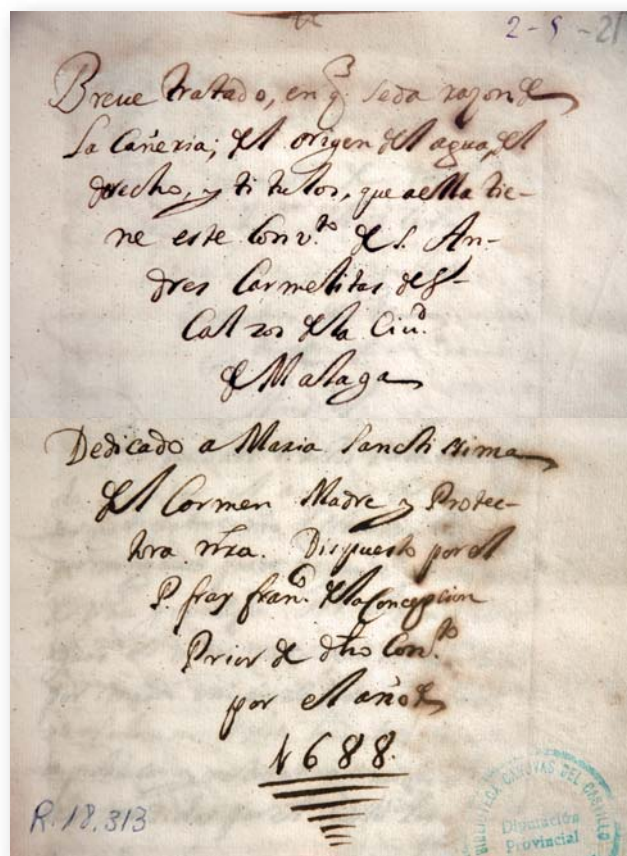 2-5-21
Breue tratado, en q̃. se da razon de
La Cañeria; del origen del agua, del
derecho, y titulos, que a ella tie-
ne este Conv.to de S. An-
dres Carmelitas des-
Calzos de la Ciu.d
de Malaga
Dedicado a Maria Sanctissima
del Cormen Madre y Protec-
tora nra. Dispuesto por el
P. fray fran.co de la Concepcion
Prior de dho Con.to
por el año de
1688.
R. 18.313
BIBLIOTECA CANOVAS DEL CASTILLO
Diputación
Provincial